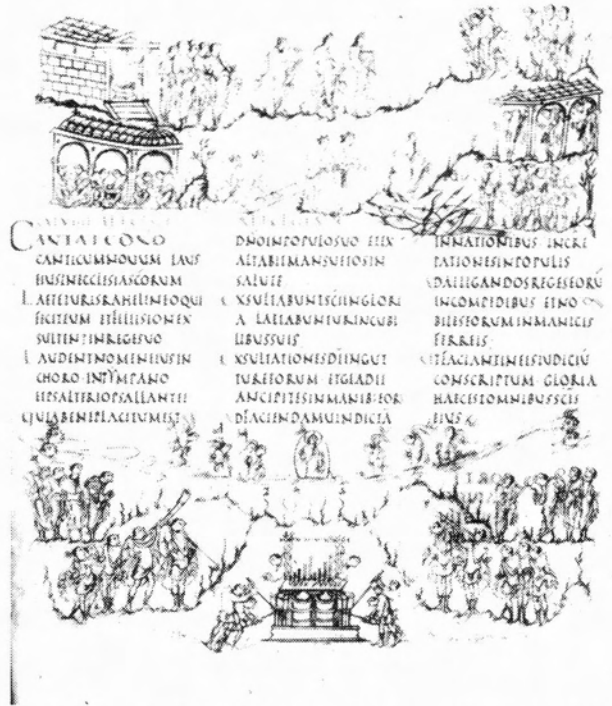 CANTATE DNO
CANTICUMNOUUM LAUS
EIUSINECCLESIASCORUM
LAETETURISRAHELINEOQUI
FECITEUM ETFILIISIONEX
SULTENTINREGESUO
LAUDENTNOMENEIUSIN
CHORO INTYMPANO
ETPSALTERIOPSALLANTEI
QUIABENEPLACITUMEST
DNOINPOPULOSUO ETEX
ALTABITMANSUETOSIN
SALUTE
EXSULTABUNTSCIINGLORI
A LAETABUNTURINCUBI
LIBUSSUIS
EXSULTATIONESDIINGUT
TUREEORUM ETGLADII
ANCIPITESINMANIB: EOR
ADFACIENDAMUINDICTĀ
INNATIONIBUS INCRE
PATIONESINPOPULIS
ADALLIGANDOSREGESEORŪ
INCOMPEDIBUS ETNO
BILESEORUMINMANICIS
FERREIS:
UTFACIANTINEISIUDICIŪ
CONSCRIPTUM GLORIA
HAECESTOMNIBUSSCIS
EIUS